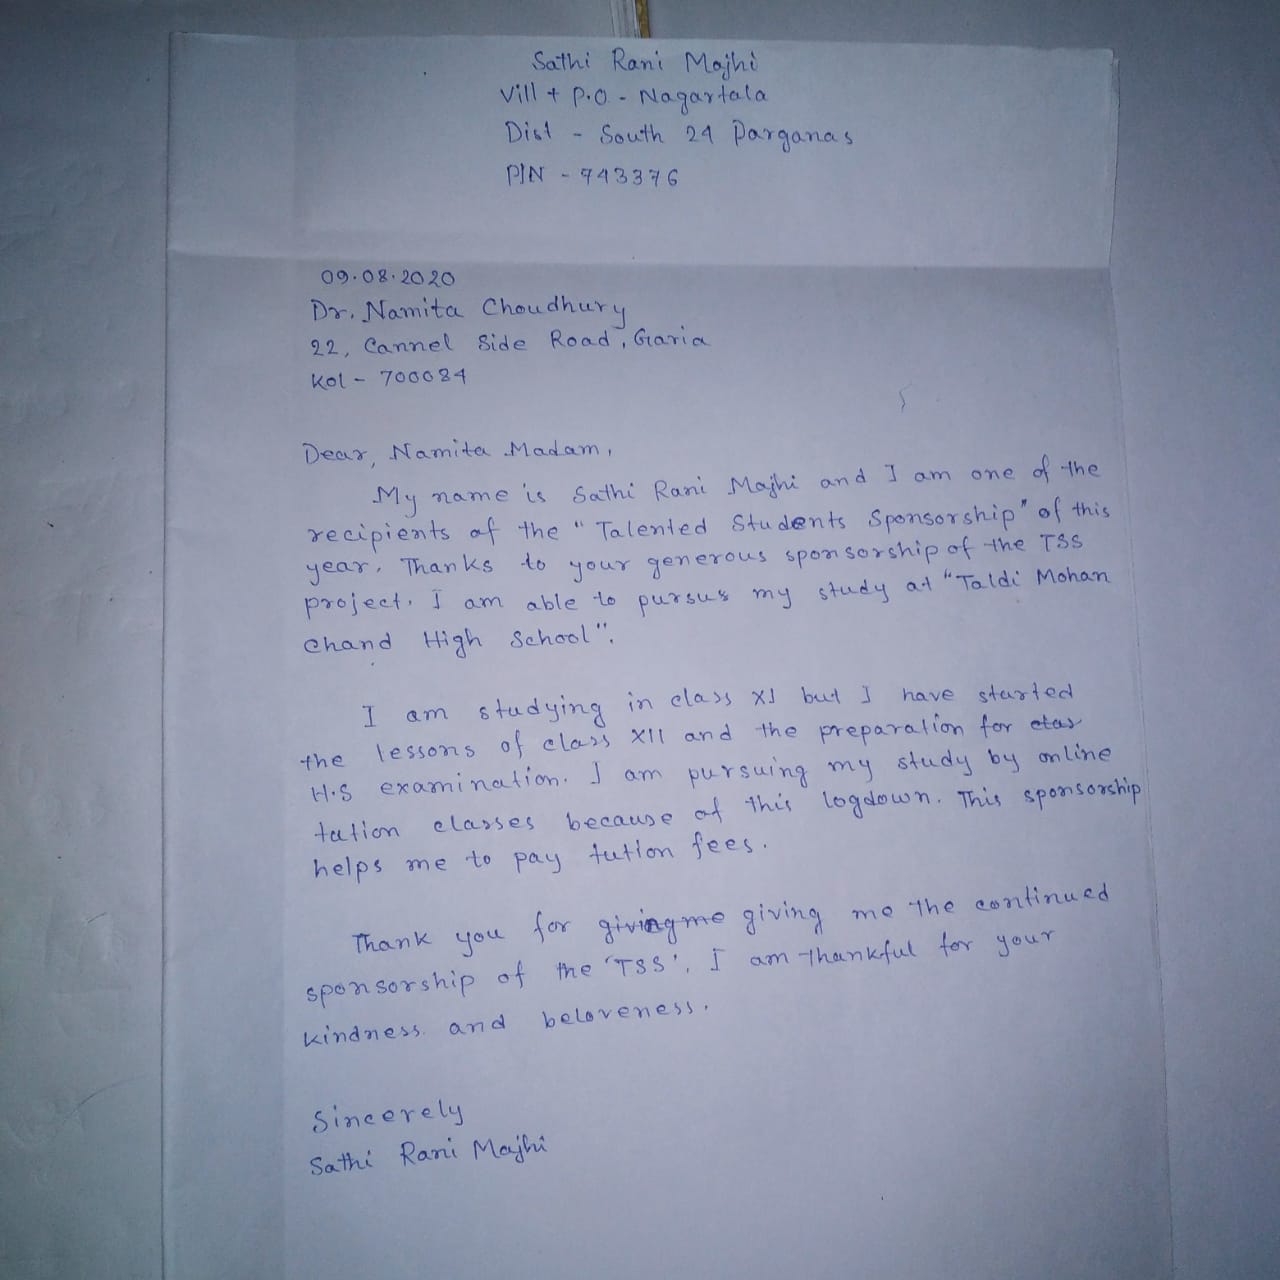 Sathi Rani Majhi
Vill + P.O - Nagartala
Dist - South 24 Parganas
PIN - 743376
09.08.2020
Dr. Namita Choudhury
22, Cannel Side Road, Garia
Kol - 700084
Dear, Namita Madam,
My name is Sathi Rani Majhi and I am one of the
recipients of the "Talented Students Sponsorship" of this
year. Thanks to your generous sponsorship of the TSS
project. I am able to pursus my study at "Taldi Mohan
Chand High School".
I am studying in class XI but I have started
the lessons of class XII and the preparation for clas
H.S examination. I am pursuing my study by online
tution classes because of this logdown. This sponsorship
helps me to pay tution fees.
Thank you for giving me giving me the continued
sponsorship of the 'TSS'. I am thankful for your
kindness and beloveness.
Sincerely
Sathi Rani Majhi